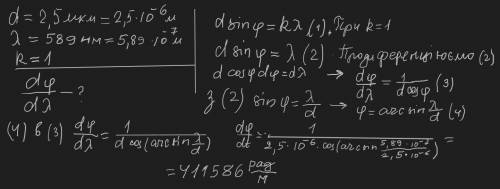 d = 2,5 мкм = 2,5·10⁻⁶ м
λ = 589 нм = 5,89·10⁻⁷ м
k = 1
dφ/dλ - ?
d sinφ = kλ (1). При k=1
d sinφ = λ (2). Продиференціюємо (2)
d cosφ dφ = dλ → dφ/dλ = 1/(d cosφ) (3)
з (2) sinφ = λ/d → φ = arcsin λ/d (4)
(4) в (3) dφ/dλ = 1/(d cos(arcsin λ/d)) dφ/dt = 1/(2,5·10⁻⁶·cos(arcsin 5,89·10⁻⁷/2,5·10⁻⁶)) =
= 411586 рад/м